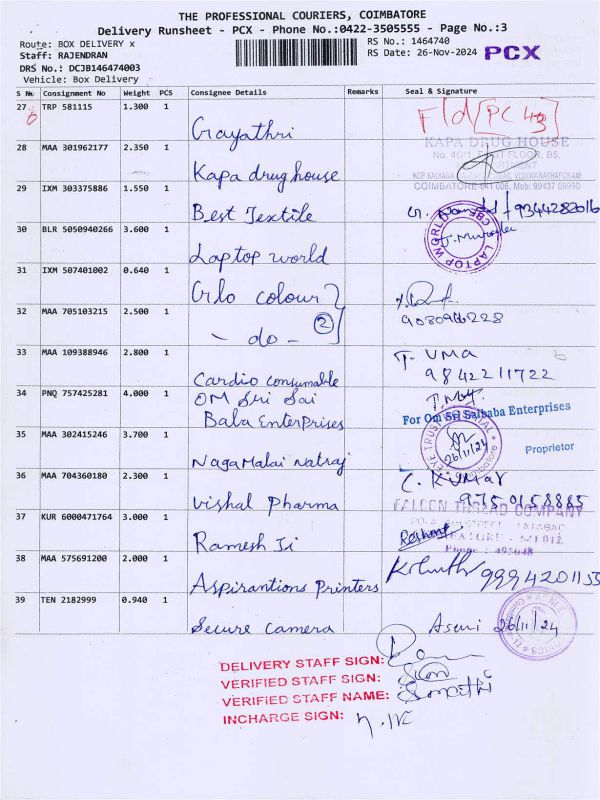 THE PROFESSIONAL COURIERS, COIMBATORE
Delivery Runsheet - PCX - Phone No.:0422-3505555 - Page No.:3
Route: BOX DELIVERY x
Staff: RAJENDRAN
DRS No.: DCJB146474003
Vehicle: Box Delivery
RS No.: 1464740
RS Date: 26-Nov-2024
PCX
S No Consignment No Weight PCS Consignee Details Remarks Seal & Signature
27 TRP 581115 1.300 1 Gayathri
28 MAA 301962177 2.350 1 Kapa drug house
KAPA DRUG HOUSE
COIMBATORE-641 006. Mob: 99437 09990
29 IXM 303375886 1.550 1 Best Textile 9344282016
30 BLR 5050940266 3.600 1 Laptop world
LAPTOP WORLD
31 IXM 507401002 0.640 1 Glo colour
9080966228
32 MAA 705103215 2.500 1 - do - 2
33 MAA 109388946 2.800 1 Cardio consumable T. UMA
9842211722
34 PNQ 757425281 4.000 1 OM Sri Sai
Baba Enterprises
For Om Sri Saibaba Enterprises
Proprietor
35 MAA 302415246 3.700 1 Nagamalai Natraj
26/11/24
36 MAA 704360180 2.300 1 Vishal Pharma C. KUMAR
9750158885
FALCON THREAD COMPANY
37 KUR 6000471764 3.000 1 Ramesh Ji
38 MAA 575691200 2.000 1 Aspirantions Printers 9994201153
39 TEN 2182999 0.940 1 Secure camera 26/11/24
DELIVERY STAFF SIGN:
VERIFIED STAFF SIGN:
VERIFIED STAFF NAME:
INCHARGE SIGN: